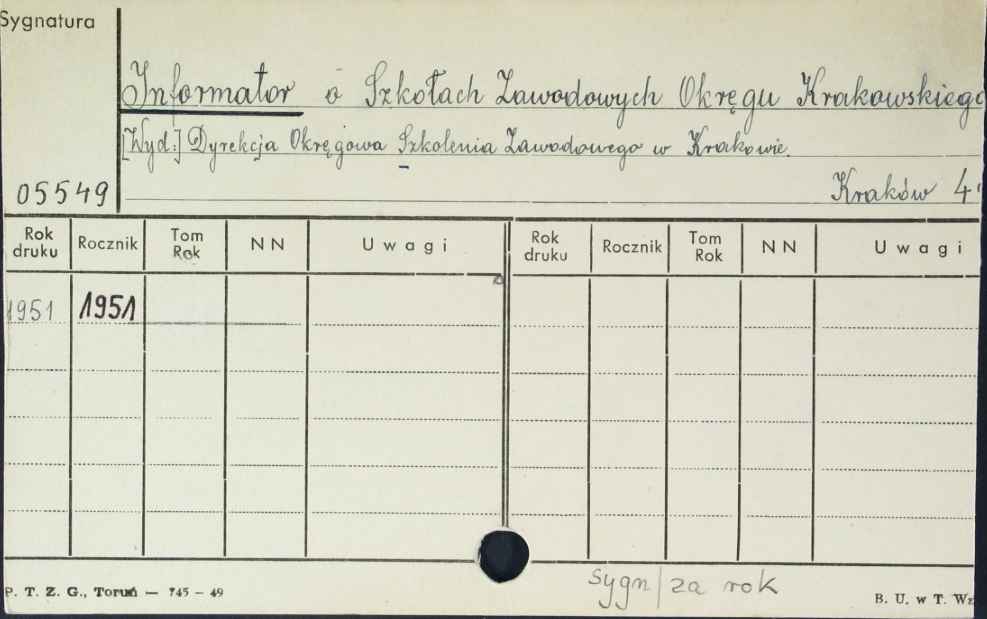 Sygnatura
Informator o Szkołach Zawodowych Okręgu Krakowskiego
[Wyd:] Dyrekcja Okręgowa Szkolenia Zawodowego w Krakowie.
05549
Kraków 4°
Rok druku Rocznik Tom Rok NN Uwagi Rok druku Rocznik Tom Rok NN Uwagi
1951 1951
sygn/za rok
P. T. Z. G., Toruń — 745 - 49
B. U. w T. Wz